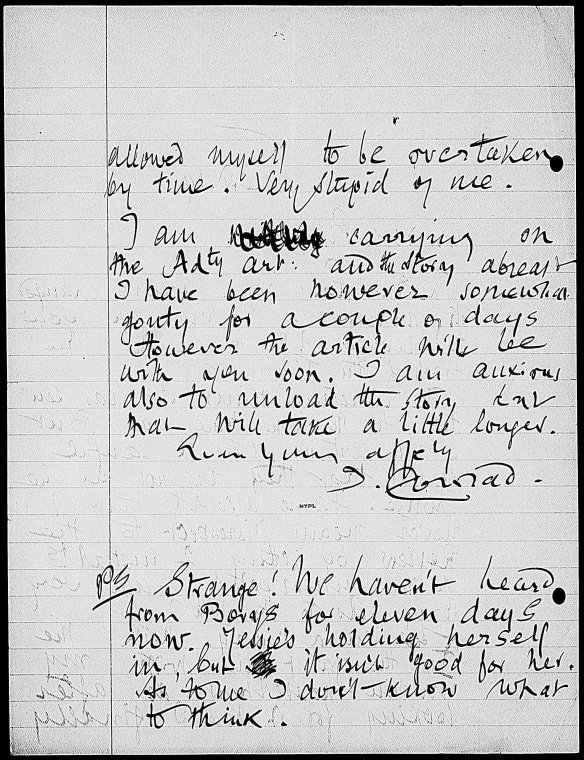 allowed myself to be overtaken
by time. Very stupid of me.
I am carrying on
the Adty art: and the story abreast
I have been however somewhat
gouty for a couple of days
However the article will be
with you soon. I am anxious
also to unload the story but
that will take a little longer.
Ever Yours affly
J. Conrad.
NYPL
PS Strange! We haven't heard
from Borys for eleven days
now. Jessie's holding herself
in, but it isn't good for her.
As to me I don't know what
to think.